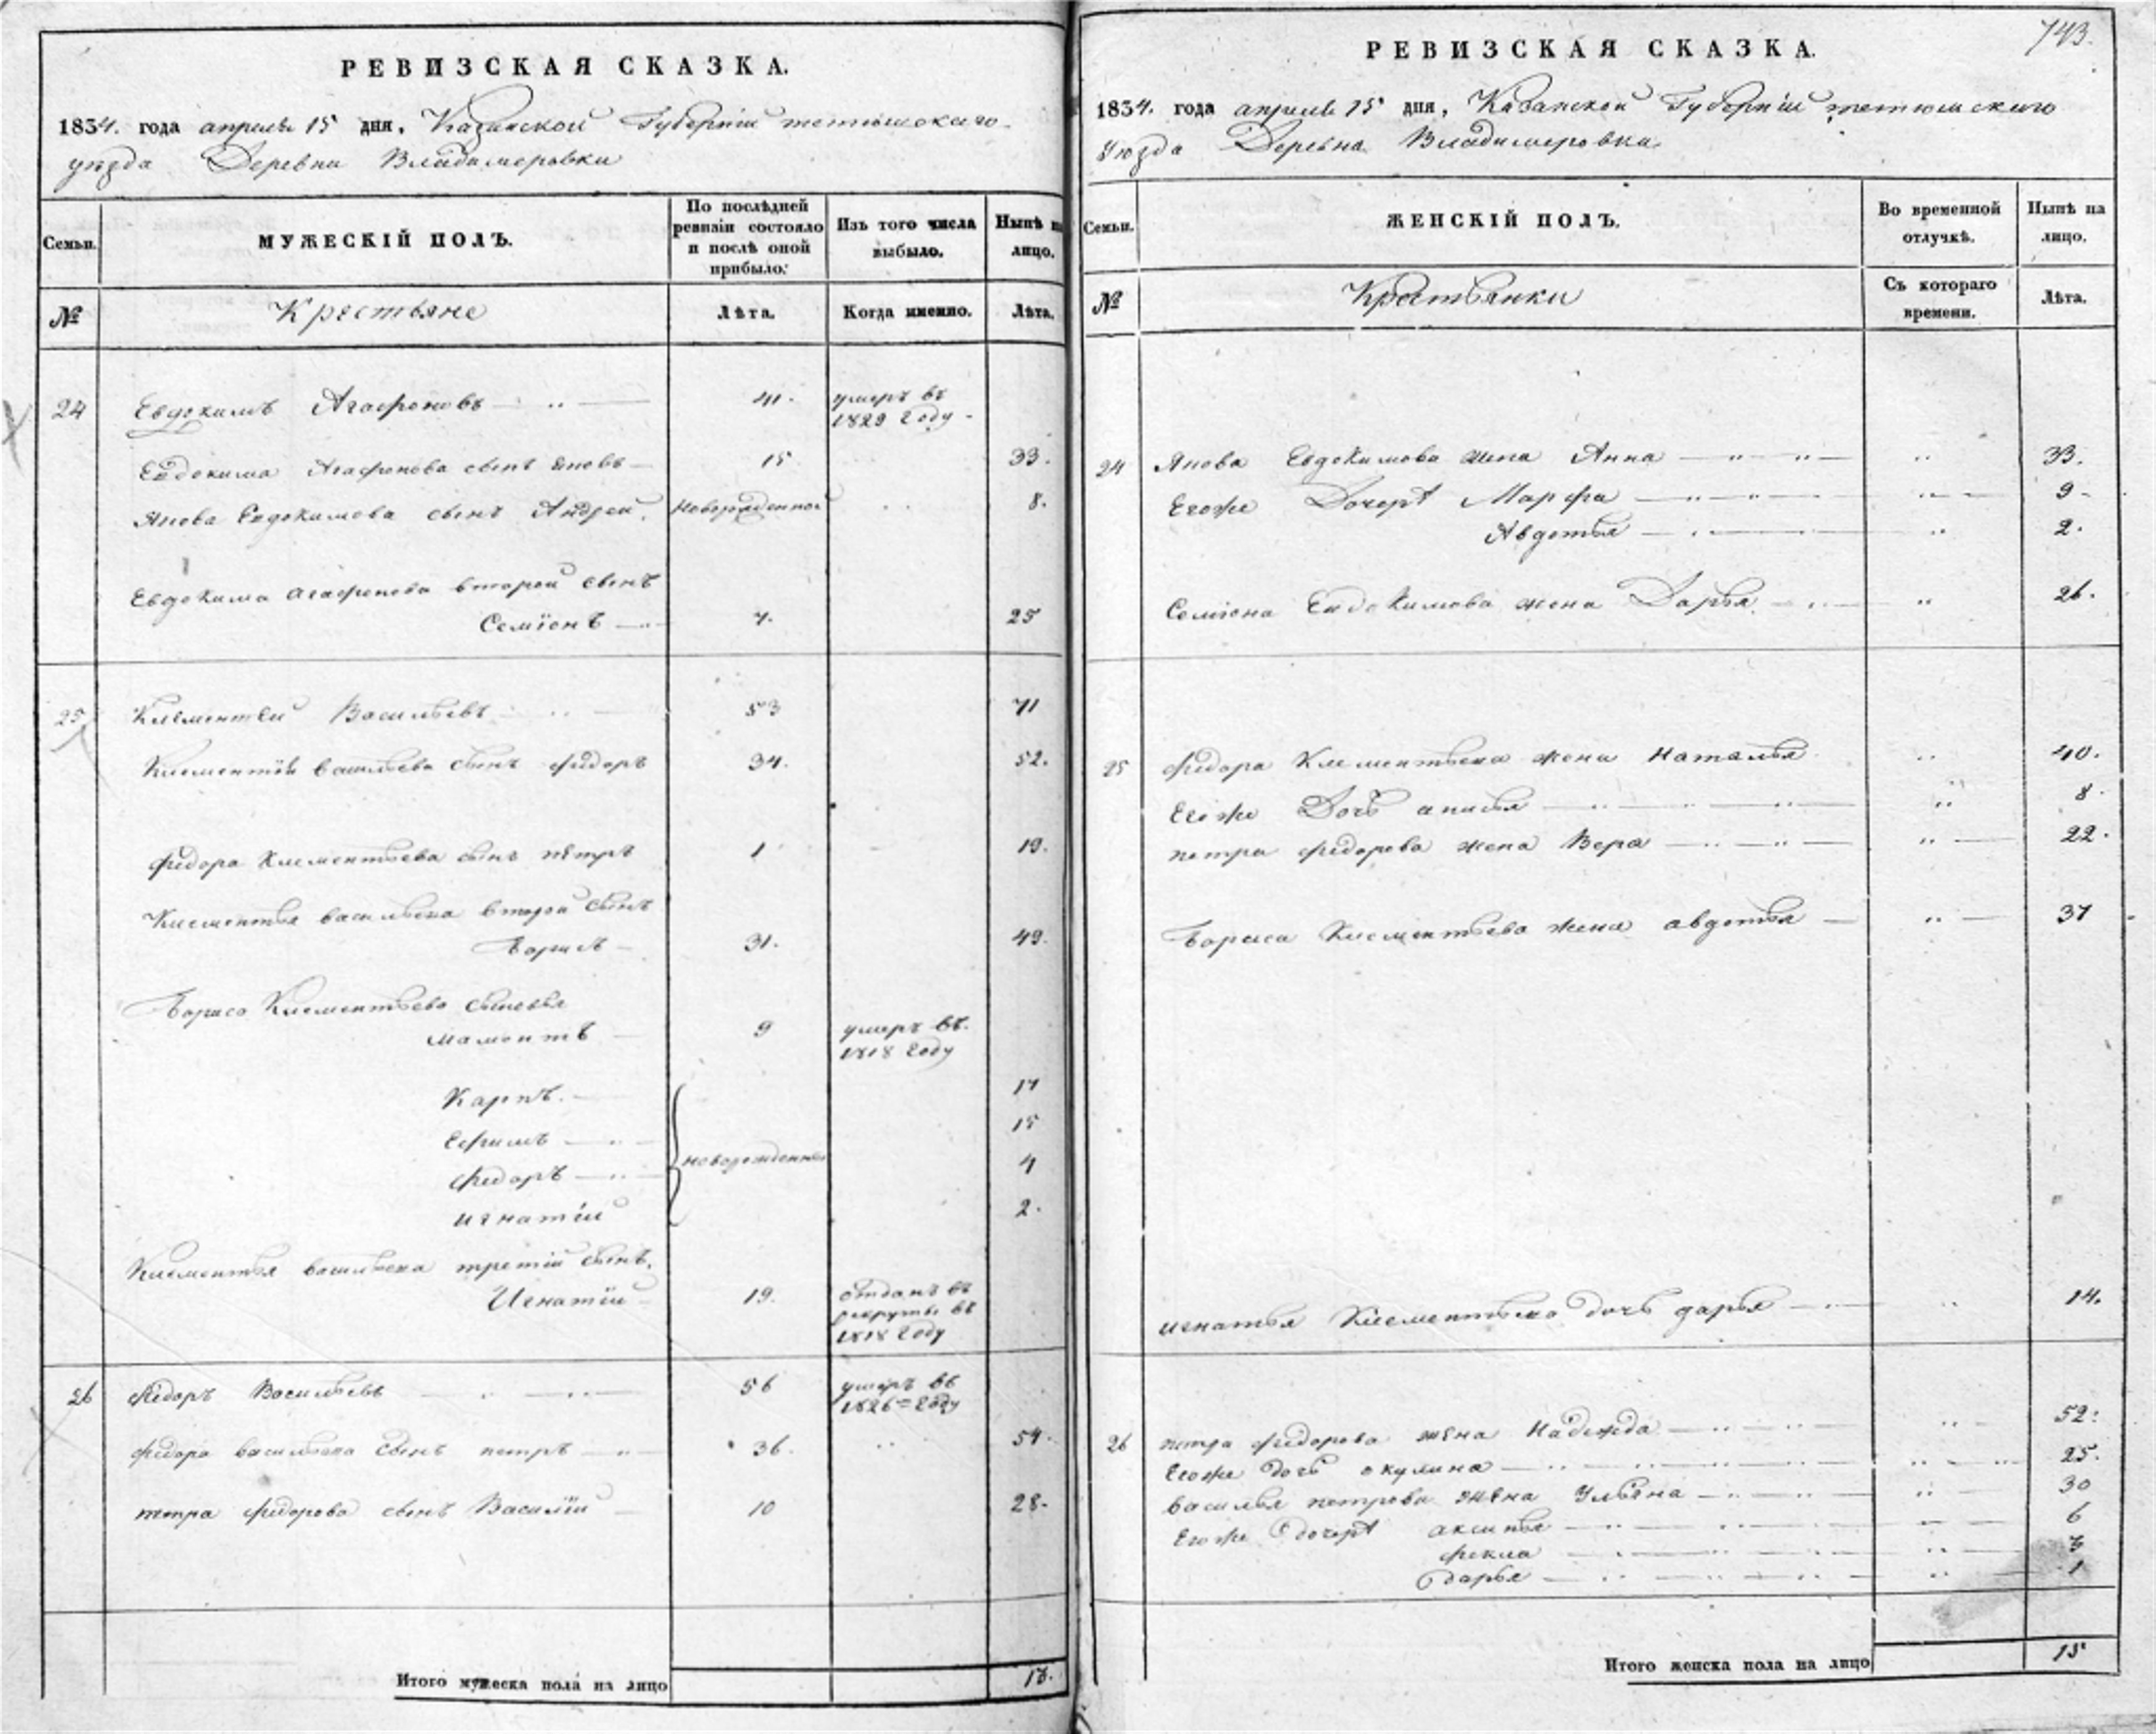 РЕВИЗСКАЯ СКАЗКА.
1834. года апреля 15 дня, Казанской Губернiи тетюшскаго
уезда Деревни Владимеровки
Семьи.
МУЖЕСКІЙ ПОЛЪ.
По послѣдней
ревизіи состояло
и послѣ оной
прибыло.
Изъ того числа
выбыло.
Нынѣ на
лицо.
№
Крестьяне
Лѣта.
Когда именно.
Лѣта.
24 Евдокимъ Агафоновъ 41. умеръ въ
1829 году
Евдокима Агафонова сынъ Яковъ 15 33.
Якова Евдокимова сынъ Андрей. Новорожденной 8.
Евдокима агафонова второй сынъ
Семiонъ 7. 25
25 Клементей Васильевъ 53 71
Клементiя васильева сынъ федоръ 34. 52.
федора Клементьева сынъ петръ 1 19.
Клементья васильева второй сынъ
Борисъ 31. 49.
Бориса Клементьева сыновья
мамонтъ 9 умеръ въ.
1818 году
Карпъ. 17
Ефимъ 15
новорожденныя
федоръ 4
игнатiй 2.
Клементья васильева третiй сынъ.
Игнатiй 19. отданъ въ
рекруты въ
1818 году
26 федоръ Васильевъ 56 умеръ въ
1826 = году
федора васильева сынъ петръ 36. 54.
петра федорова сынъ Василiй 10 28.
Итого мужеска пола на лицо 13.
743.
РЕВИЗСКАЯ СКАЗКА.
1834. года апреля 15 дня, Казанской Губернiи тетюшскаго
Уезда Деревна Владимеровка
Семьи.
ЖЕНСКІЙ ПОЛЪ.
Во временной
отлучкѣ.
Нынѣ на
лицо.
№
Крестьянки
Съ котораго
времени.
Лѣта.
24 Якова Евдокимова жена Анна 33.
Егоже Дочери Марфа 9
Авдотья 2.
Семiона Евдокимова жена Дарья 26.
25 федора Клементьева жена Наталья 40.
Егоже Дочь анисья 8
петра федорова жена Вера 22.
Бориса Клементьева жена авдотья 37
игнатья Клементьева дочь дарья 14.
26 петра федорова жена Надежда 52.
Егоже дочь окулина 25.
василья петрова жена Ульяна 30
Егоже дочери аксинья 6
фекла 3
дарья 1
Итого женска пола на лицо 15